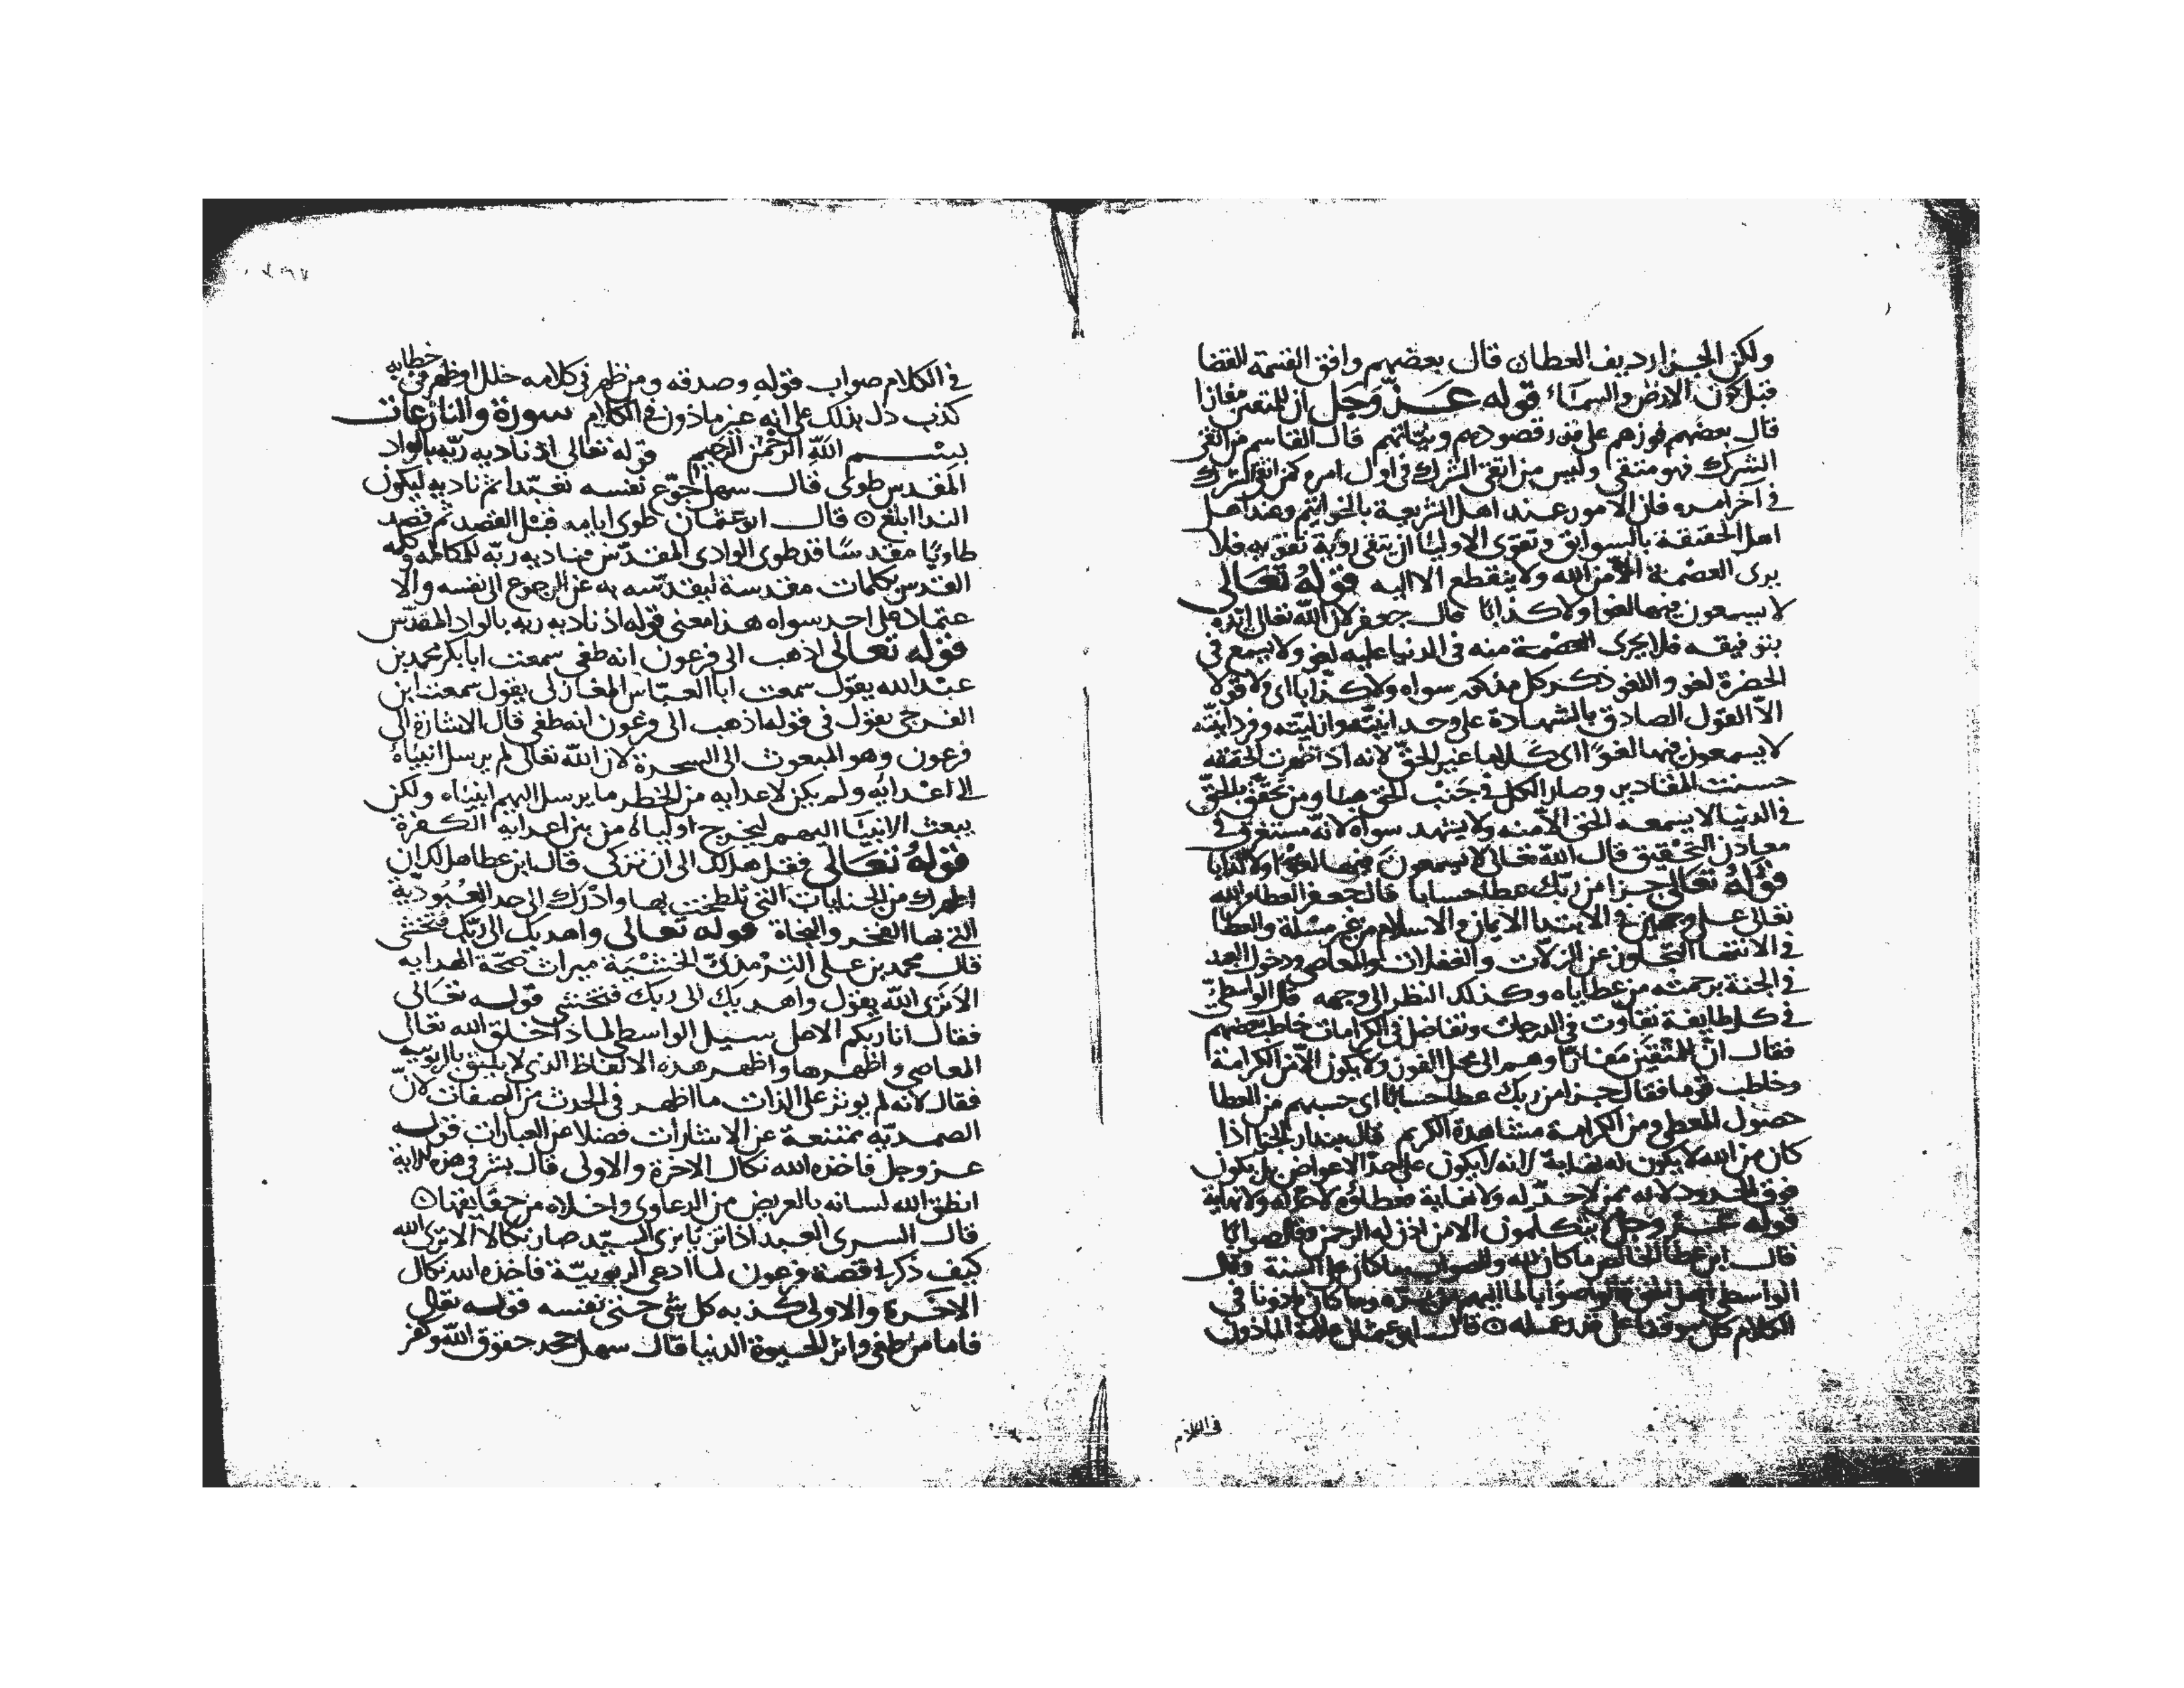 ولكن الجزا رديف العطا ن قال بعضهم وافق القسمة القضا
قبل كون الارض والسماء قوله عز وجل ان للمتقين مفازا
قال بعضهم فوزهم على قدر قصودهم ونياتهم قال القاسم من اتقى
الشرك فهو متقى وليس من اتقى الشرك فى اول امره كمن اتقى الشرك
فى آخر امره فان الامور عند اهل الشريعة بالخواتيم وعند اهل
اهل الحقيقة بالسوابق وتقوى الاوليا ان يتقى رؤية تقواه فلا
يرى العصمة الا من الله ولا ينقطع الا اليه قوله تعالى
لا يسمعون فيها لغوا ولا كذابا قال جعفر لان الله تعالى ايده
بتوفيقه فلا يجرى العصمة منه فى الدنيا عليه لغو ولا يسمع فى
الحضرة لغو واللغو ذكر كل مذكور سواه ولا كذابا اى ولا قولا
الا القول الصادق بالشهادة على وحدانيته وازليته وفردانيته
لا يسمعون فيها لغوا اى كلاما غير الحق لانه اذا ظهرت الحقيقه
خسئت المقادير وصار الكل فى جنب الحق هبا ومن تحقق بالحق
فى الدنيا لا يسمعه الحق الا منه ولا يشهد سواه لانه مستغرق فى
معادن التحقيق قال الله تعالى لا يسمعون فيها لغوا ولا كذابا
قوله تعالى جزا من ربك عطا حسابا قال جعفر العطا من الله
تعالى على وجهين فى الابتدا الايمان والاسلام من غير مسئلة والعطا
فى الانتها التجاوز عن الزلات والغفلات والمعاصى ودخول العبد
فى الجنة برحمته من عطاياه وكذلك النظر الى وجهه قال الواسطى
فى كل طايفة تفاوت فى الدرجات وتفاضل فى الكرامات خاطب بعضهم
فقال ان للمتقين مفازا وهم الى محل الفوز ولا يكون الا من الكرامة
وخاطب قوما فقال جزا من ربك عطا حسابا اى حسبهم من العطا
حصول المعطى ومن الكرامة مشاهدة الكريم قال بندار الجزا اذا
كان من الله لا يكون له نهاية لانه لا يكون على حد الاعواض بل يكون
فوق الحدود لانه ممن لا حد له ولا نهاية فعطاؤه لا حد له ولا نهاية
قوله عز وجل لا يتكلمون الا من اذن له الرحمن وقال صوابا
قال ابن عطا الخالص ما كان لله والصواب ما كان على السنة وقال
الواسطى
الكلام كل موقف على قدر عمله ن قال ابو عثمان علامة الماذون
فى الكلام
فى الكلام صواب قوله وصدقه ومن ظهر فى كلامه خلل او ظهر فى خطابه
كذب دل بذلك على انه غير ماذون فى الكلام سورة والنازعات
بسم الله الرحمن الرحيم قوله تعالى اذ ناديه ربه بالواد
المقدس طوى قال سهل جوع نفسه تعبدا ثم ناديه ليكون
الندا ابلغ ن قال ابو عثمان طوى ايامه قبل القصد ثم قصد
طاويا مقدسا قد طوى الوادى المقدس فناديه ربه للمكالمه وكله
القدس بكلمات مقدسة ليقدسه به عن الرجوع الى نفسه والا
عتماد على احد سواه هذا معنى قوله اذ ناديه ربه بالواد المقدس
قوله تعالى اذهب الى فرعون انه طغى سمعت ابا بكر محمد بن
عبد الله يقول سمعت ابا العباس المغازلى يقول سمعت ابن
الفرجى يقول فى قوله اذهب الى فرعون انه طغى قال الاشارة الى
فرعون وهو المبعوث الى السحرة لان الله تعالى لم يرسل انبياه
الى اعدايه ولم يكن لاعدايه من الخطر ما يرسل اليهم انبياء ولكن
يبعث الانبيا اليهم ليخرج اولياه من بين اعدايه الكفرة
قوله تعالى فقل هل لك الى ان تزكى قال ابن عطا هل لك ان
اطهرك من الجنايات التى تلطخت بها وادرك الى حد العبودية
التى بها الفخر والنجاة قوله تعالى واهديك الى ربك فتخشى
قال محمد بن على الترمذى الخشية ميراث صحة الهدايه
الا ترى الله يقول واهديك الى ربك فتخشى قوله تعالى
فقال انا ربكم الاعلى سيل الواسطى لماذا خلق الله تعالى
المعاصى واظهرها واظهر هذه الالفاظ الذى لا يليق بالربوبيه
فقال لانه لم يوثر على الذات ما اظهر فى الحدث من الصفات لان
الصمديه ممتنعة عن الاشارات فضلا عن العبارات قوله
عز وجل فاخذه الله نكال الاخرة والاولى قال بشر فى هذه الاية
انطق الله لسانه بالعريض من الدعاوى واخلاه من حقايقها ن
قال السرى العبد اذا تزيا بزى السيد صار نكالا الا ترى الله
كيف ذكر فى قصة فرعون لما ادعى الربوبية فاخذه الله نكال
الاخرة والاولى كذبه كل شى حتى نفسه قوله تعالى
فاما من طغى واثر الحيوة الدنيا قال سهل جحد حقوق الله وكفر